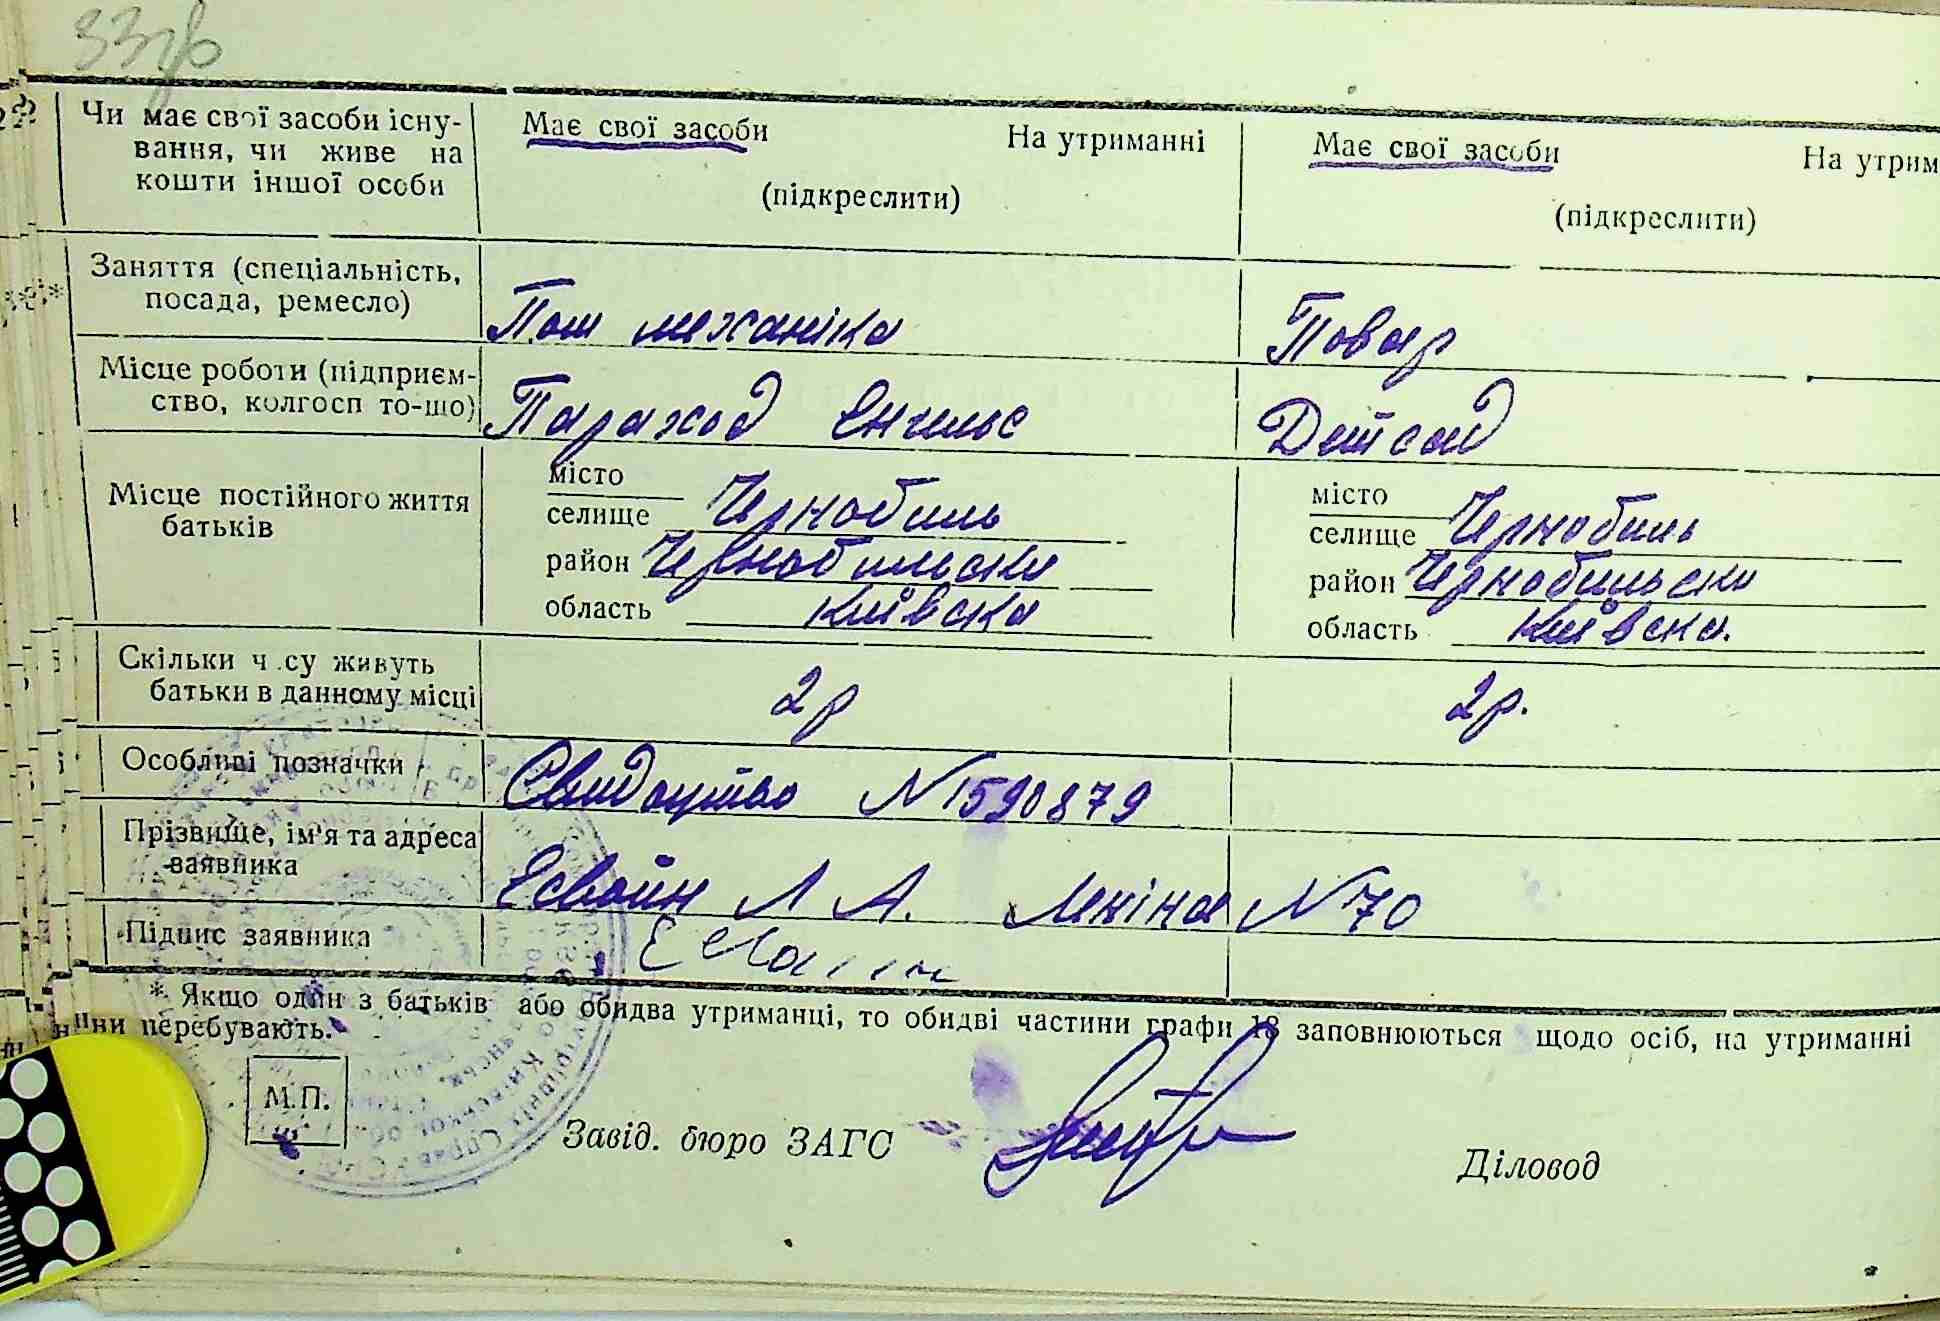 33зв
Чи має свої засоби існу-
вання, чи живе на
кошти іншої особи
Має свої засоби На утриманні
(підкреслити)
Має свої засоби На утрим
(підкреслити)
Заняття (спеціальність,
посада, ремесло)
Пом механіка
Повар
Місце роботи (підприєм-
ство, колгосп то-що)
Параход Енгельс
Детсад
Місце постійного життя
батьків
місто
селище Чернобиль
район Чернобильски
область Київска
місто
селище Чернобиль
район Чернобильски
область Київска.
Скільки ч су живуть
батьки в данному місці
2 р
2 р.
Особливі позначки
Свидоцтво N 1590879
Прізвище, ім'я та адреса
заявника
Л А. N 70
Підпис заявника
* Якщо один з батьків або обидва утриманці, то обидві частини графи 13 заповнюються щодо осіб, на утриманні
перебувають.
М.П.
Завід. бюро ЗАГС
Діловод